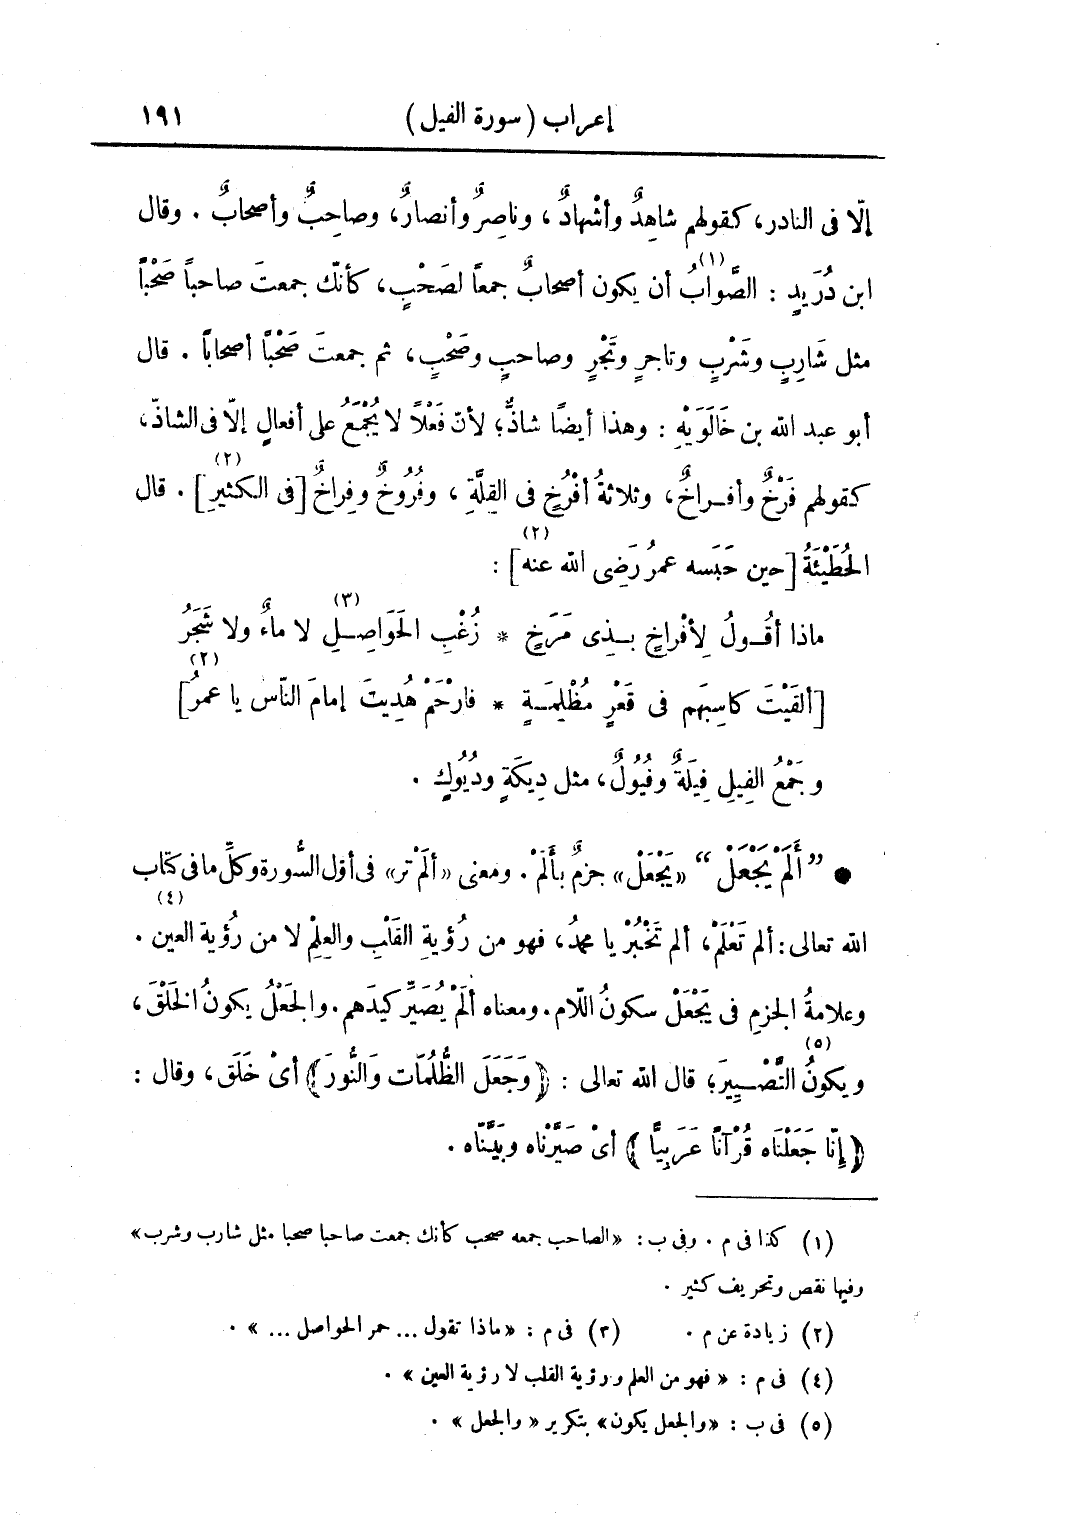 إعراب (سورة الفيل) ١٩١
إلّا فى النادر، كقولهم شاهِدٌ وأشْهادٌ، وناصِرٌ وأنصارٌ، وصاحِبٌ وأصحابٌ. وقال
ابن دُرَيدٍ : الصَّوابُ (١) أن يكون أصحابٌ جمعاً لصَحْبٍ، كأنّك جمعتَ صاحباً صَحْباً
مثل شَارِبٍ وشَرْبٍ وتاجرٍ وتَجْرٍ وصاحبٍ وصَحْبٍ، ثم جمعتَ صَحْبًا أصحابًا. قال
أبو عبد الله بن خَالَوَيْهِ : وهذا أيضًا شاذٌّ؛ لأنّ فَعْلًا لا يُجْمَعُ على أفعالٍ إلّا فى الشاذّ،
كقولهم فَرْخٌ وأفــراخٌ، وثلاثةُ أفْرُخٍ فى القِلَّةِ، وفُرُوخٌ وفِراخٌ [فى الكثيرِ] (٢). قال
الحُطَيْئَةُ [حين حَبَسه عمرُ رَضِى الله عنه] (٢) :
ماذا أقُــولُ لِأفْراخٍ بــذِى مَرَخٍ * زُغْبِ الحَوَاصِــلِ (٣) لا ماءٌ ولا شَجَرُ
[ألقَيْتَ كاسِبَهم فى قَعْرٍ مُظْلِمَــةٍ * فارْحَمْ هُدِيتَ إمامَ النّاس يا عمرُ] (٢)
وجَمْعُ الفِيلِ فِيلَةٌ وفُيُولٌ، مثل دِيكَةٍ ودُيُوكٍ.
● ”أَلَمْ يَجْعَلْ“ «يَجْعَلْ» جزمٌ بأَلَمْ. ومعنى «ألَمْ تر» فى أوّل السُّورة وكلِّ ما فى كتاب
الله تعالى : ألم تَعْلَمْ، ألم تَخْبُرْ يا محمدُ، فهو من رُؤيةِ القَلْبِ والعِلْمِ لا من رُؤية العين (٤).
وعلامةُ الجزمِ فى يَجْعَلْ سكونُ اللّام. ومعناه ألَمْ يُصَيِّرْ كيدَهم. والجَعْلُ يكونُ الخَلْقَ،
ويكونُ (٥) التَّصْــيِيرَ؛ قال الله تعالى : ﴿وَجَعَلَ الظُّلُمَات وَالنُّورَ﴾ أىْ خَلَق، وقال :
﴿إِنّا جَعَلْنَاه قُرْآنًا عَرَبِيًّا﴾ أىْ صَيَّرْناه وبَيَّنّاه.
(١) كذا فى م. وفى ب : «الصاحب جمعه صحب كأنك جمعت صاحبا صحبا مثل شارب وشرب»
وفيها نقص وتحريف كثير.
(٢) زيادة عن م. (٣) فى م : «ماذا تقول ... حمر الحواصل ...».
(٤) فى م : «فهو من العلم ورؤية القلب لا رؤية العين».
(٥) فى ب : «والجعل يكون» بتكرير «والجعل».